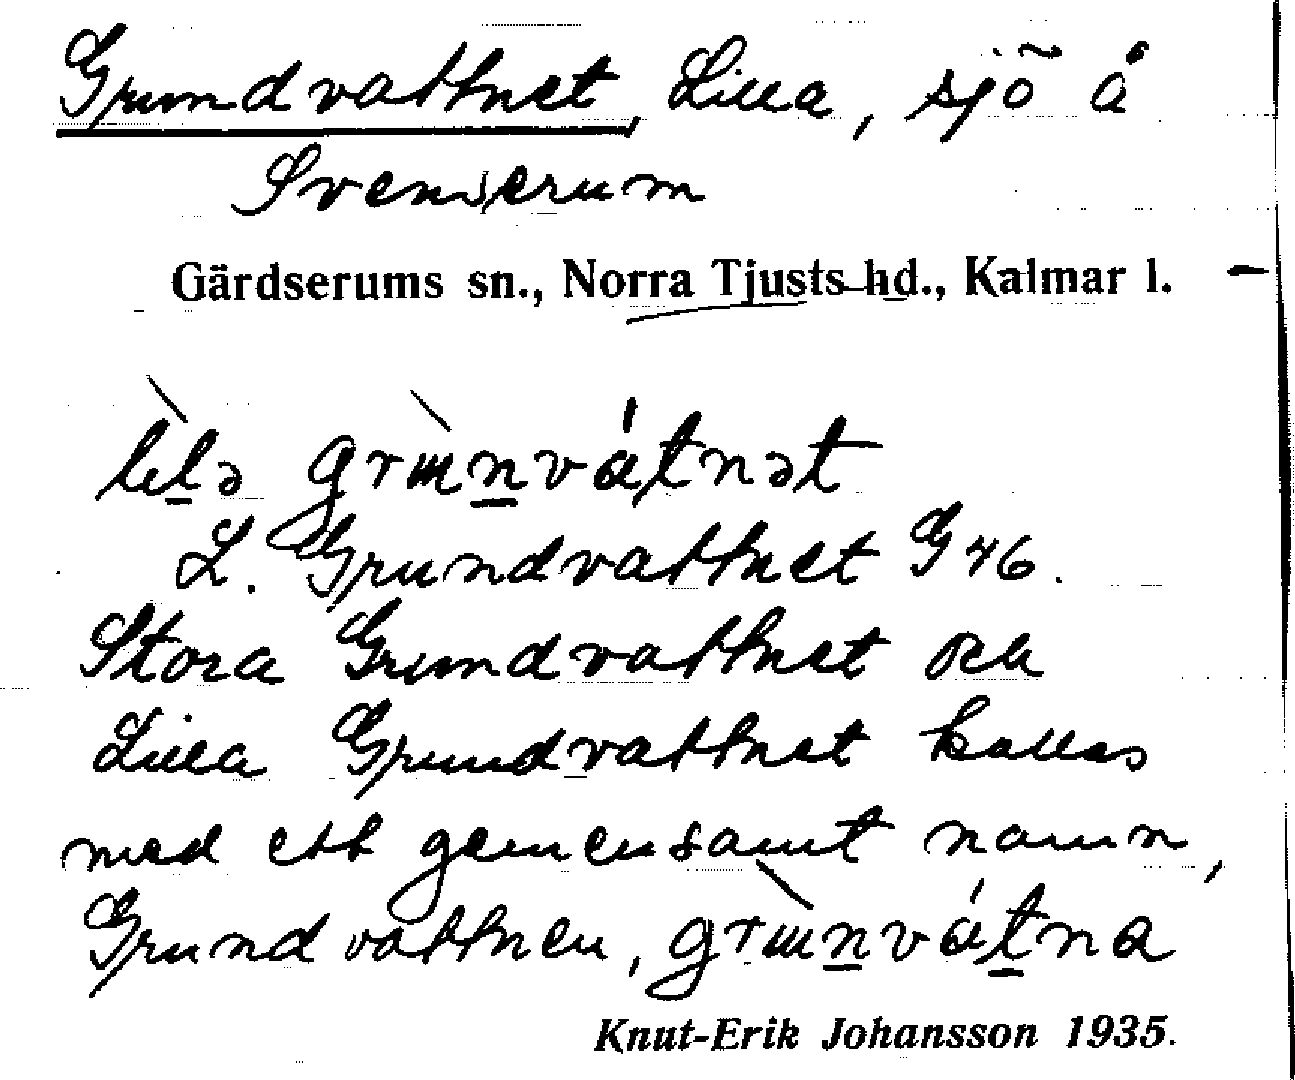 Grundvattnet, Lilla, sjö å
Svenserum
Gärdserums sn., Norra Tjusts hd., Kalmar l.
lìlə grɯ̀nvátnət
L. Grundvattnet G 46.
Stora Grundvattnet och
Lilla Grundvattnet kallas
med ett gemensamt namn,
Grundvattnen, grɯ̀nvátna
Knut-Erik Johansson 1935.